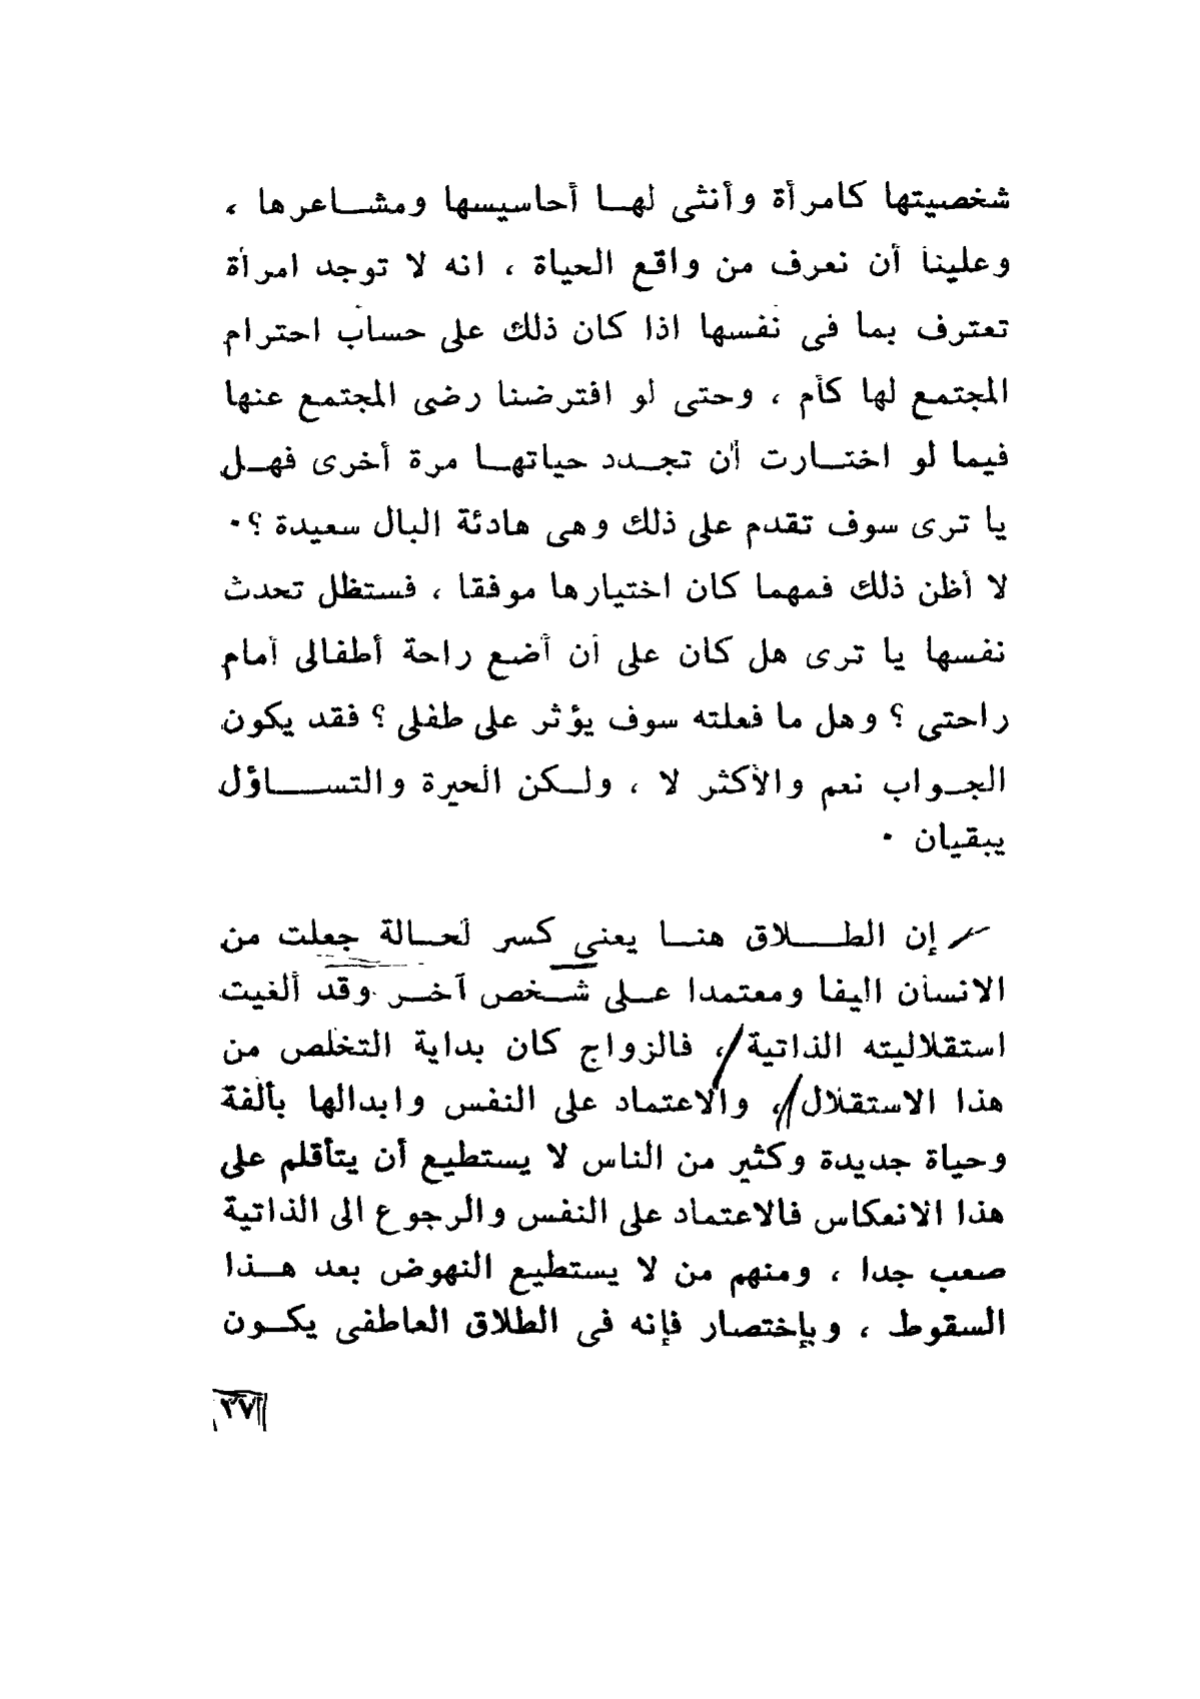 شخصيتها كامرأة وأنثى لهـا أحاسيسها ومشـاعرها ،
وعلينا أن نعرف من واقع الحياة ، انه لا توجد امرأة
تعترف بما فى نفسها اذا كان ذلك على حساب احترام
المجتمع لها كأم ، وحتى لو افترضنا رضى المجتمع عنها
فيما لو اختـارت أن تجـدد حياتهـا مرة أخرى فهـل
يا ترى سوف تقدم على ذلك وهى هادئة البال سعيدة ؟٠
لا أظن ذلك فمهما كان اختيارها موفقا ، فستظل تحدث
نفسها يا ترى هل كان على أن أضع راحة أطفالى أمام
راحتى ؟ وهل ما فعلته سوف يؤثر على طفلى ؟ فقد يكون
الجـواب نعم والأكثر لا ، ولـكن الحيرة والتســاؤل
يبقيان ٠
إن الطــلاق هنـا يعنى كسر لحـالة جعلت من
الانسان اليفا ومعتمدا عـلى شـخص آخـر وقد ألغيت
استقلاليته الذاتية ، فالزواج كان بداية التخلص من
هذا الاستقلال ، والاعتماد على النفس وابدالها بألفة
وحياة جديدة وكثير من الناس لا يستطيع أن يتأقلم على
هذا الانعكاس فالاعتماد على النفس والرجوع الى الذاتية
صعب جدا ، ومنهم من لا يستطيع النهوض بعد هـذا
السقوط ، وبإختصار فإنه فى الطلاق العاطفى يكـون
٣٧